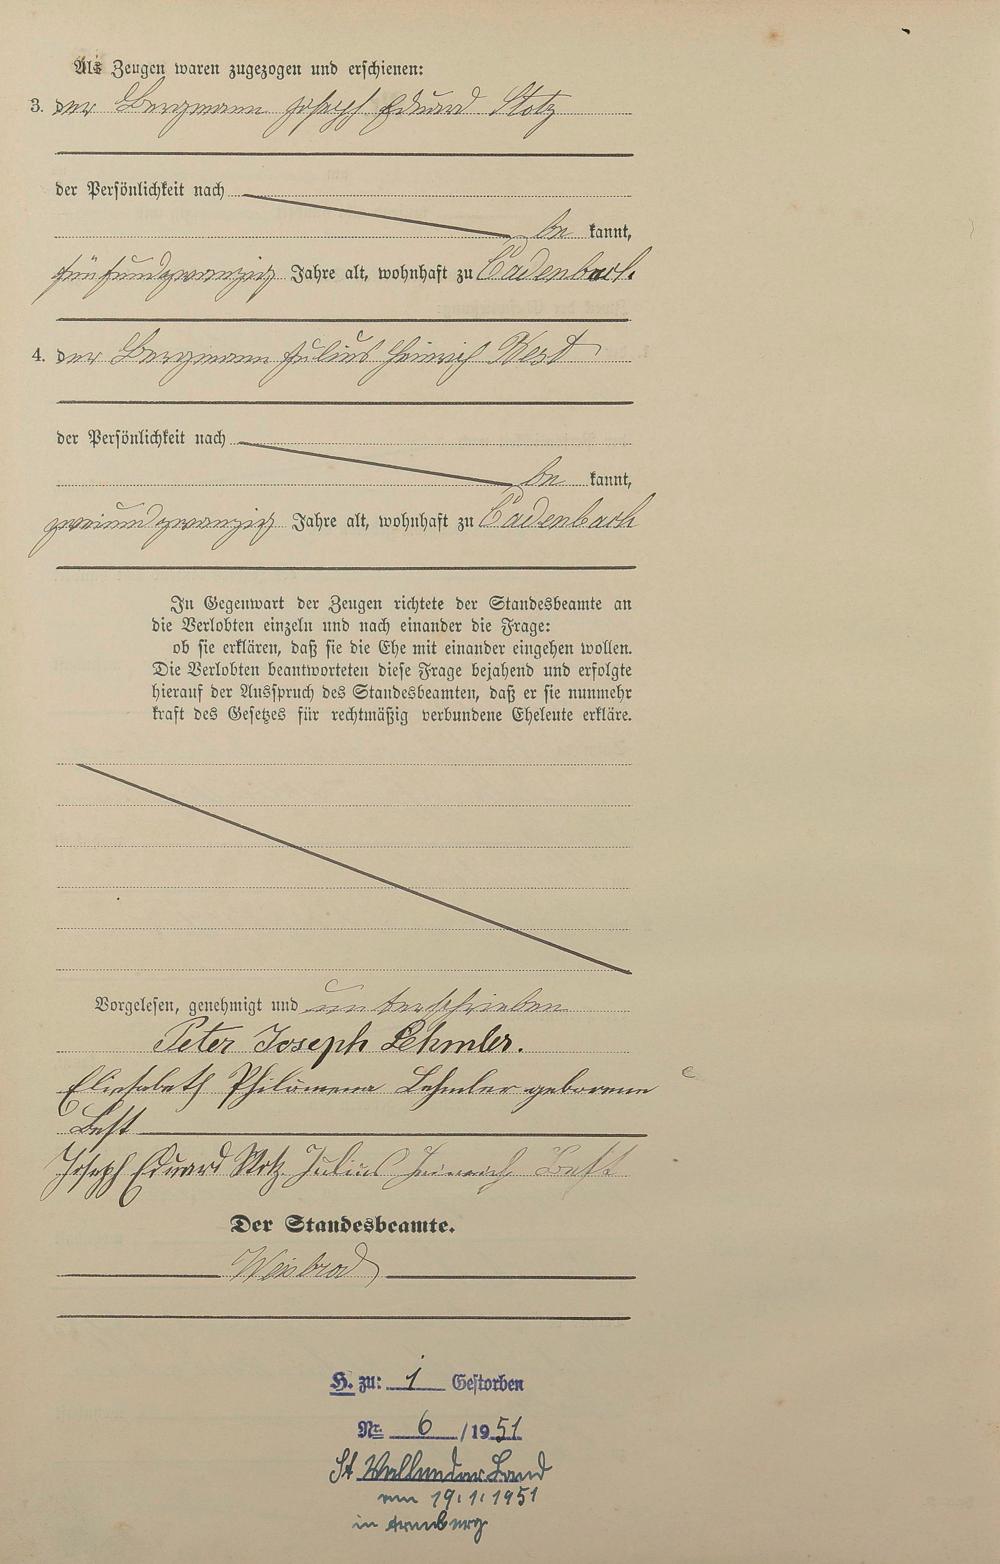 Als Zeugen waren zugezogen und erschienen:
3. der Bergmann Joseph Eduard Stotz
der Persönlichkeit nach
be kannt,
fünfundzwanzig Jahre alt, wohnhaft zu Cadenbach.
4. der Bergmann Julius Heinrich Best
der Persönlichkeit nach
be kannt,
zweiundzwanzig Jahre alt, wohnhaft zu Cadenbach
In Gegenwart der Zeugen richtete der Standesbeamte an
die Verlobten einzeln und nach einander die Frage:
ob sie erklären, daß sie die Ehe mit einander eingehen wollen.
Die Verlobten beantworteten diese Frage bejahend und erfolgte
hierauf der Ausspruch des Standesbeamten, daß er sie nunmehr
kraft des Gesetzes für rechtmäßig verbundene Eheleute erkläre.
Vorgelesen, genehmigt und unterschrieben
Peter Joseph Lehmler.
Elisabeth Philomena Lehmler geborene
Best
Joseph Eduard Stotz Julius Heinrich Best
Der Standesbeamte.
Weisbrod
H. zu: 1 Gestorben
Nr. 6 /1951
St Vallendar Land
am 19.1.1951
in Arenberg